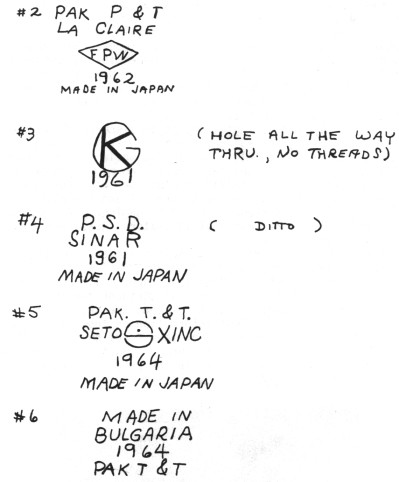 #2 PAK P & T
LA CLAIRE
FPW
1962
MADE IN JAPAN
#3 KG (HOLE ALL THE WAY
THRU., NO THREADS)
1961
#4 P.S.D. ( DITTO )
SINAR
1961
MADE IN JAPAN
#5 PAK. T. & T.
SETO S XINC
1964
MADE IN JAPAN
#6 MADE IN
BULGARIA
1964
PAK T & T